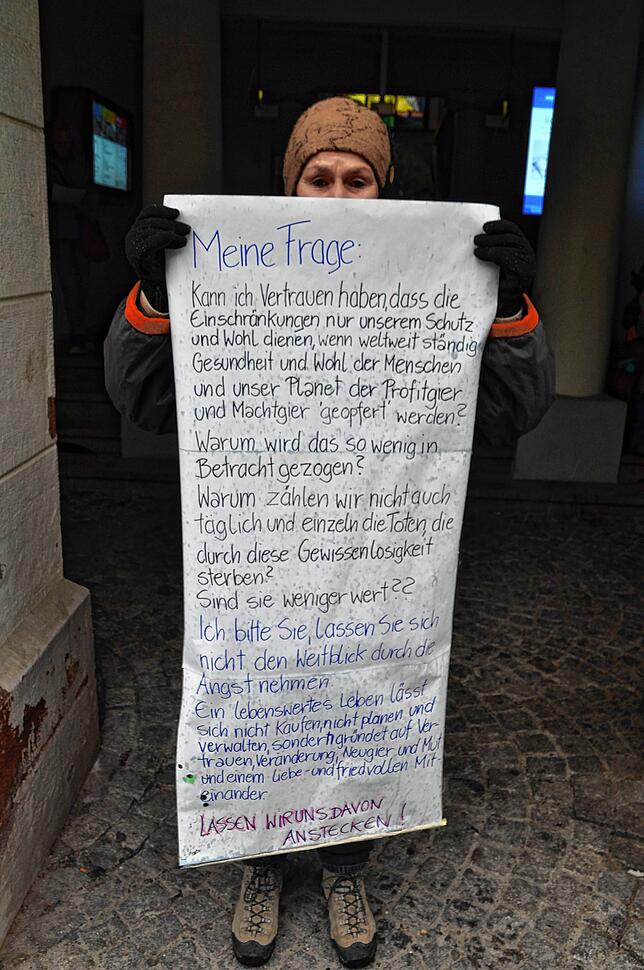 Meine Frage:
Kann ich Vertrauen haben, dass die
Einschränkungen nur unserem Schutz
und Wohl dienen, wenn weltweit ständig
Gesundheit und Wohl der Menschen
und unser Planet der Profitgier
und Machtgier 'geopfert' werden?
Warum wird das so wenig in
Betracht gezogen?
Warum zählen wir nicht auch
täglich und einzeln die Toten, die
durch diese Gewissenlosigkeit
sterben?
Sind sie weniger wert??
Ich bitte Sie, lassen Sie sich
nicht den Weitblick durch die
Angst nehmen.
Ein lebenswertes Leben lässt
sich nicht kaufen, nicht planen und
verwalten, sondern gründet auf Ver-
trauen, Veränderung, Neugier und Mut
und einem liebe- und friedvollen Mit-
einander.
LASSEN WIR UNS DAVON
ANSTECKEN!